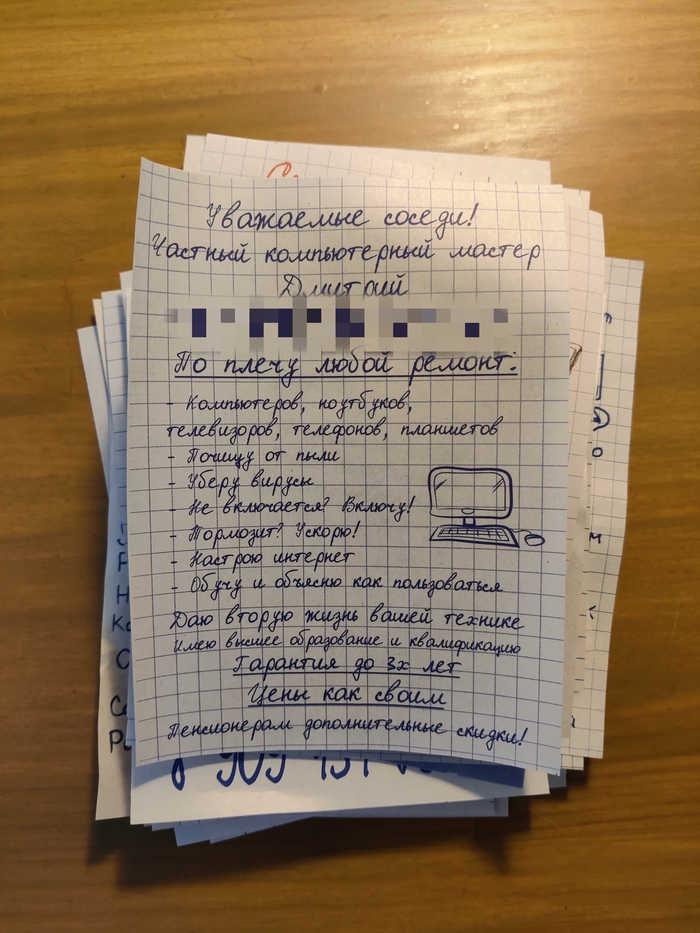 Уважаемые соседи!
Частный компьютерный мастер
Дмитрий
По плечу любой ремонт:
- Компьютеров, ноутбуков,
телевизоров, телефонов, планшетов
- Почищу от пыли
- Уберу вирусы
- Не включается? Включу!
- Тормозит? Ускорю!
- Настрою интернет
- Обучу и объясню как пользоваться
Даю вторую жизнь вашей технике
Имею высшее образование и квалификацию
Гарантия до 3х лет
Цены как своим
Пенсионерам дополнительные скидки!